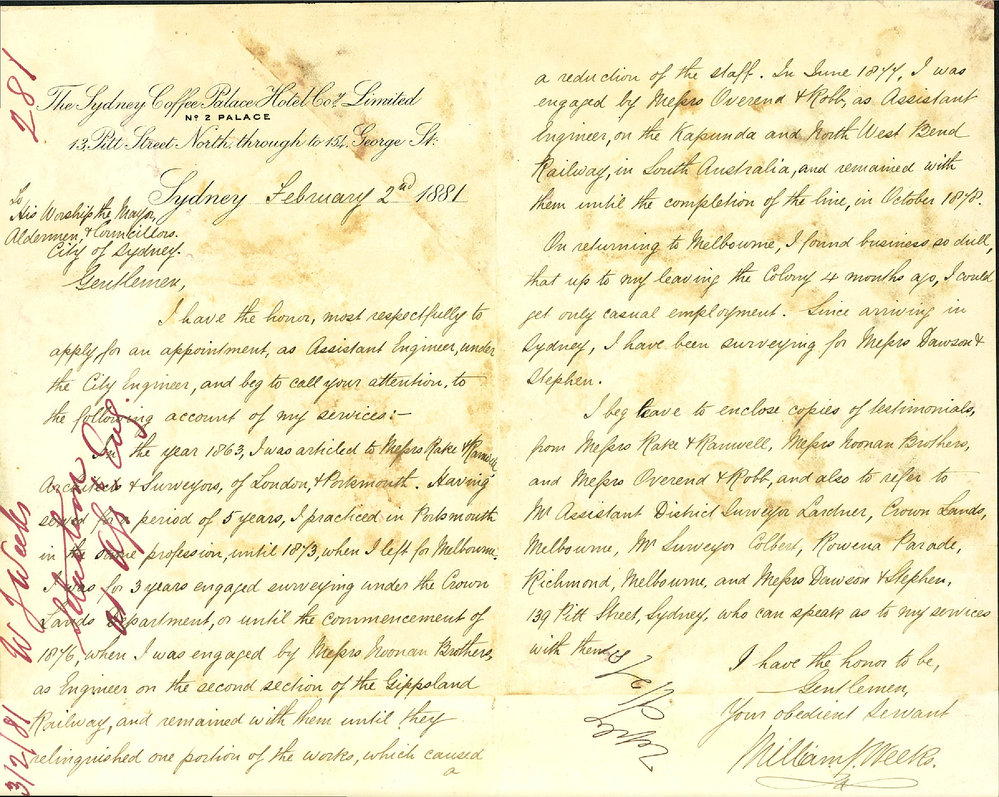 281
The Sydney Coffee Palace Hotel Coy. Limited
No 2 PALACE
13, Pitt Street North, through to 154, George St:
Sydney February 2nd 1881
To
His Worship the Mayor,
Aldermen, & Councillors.
City of Sydney.
Gentlemen,
I have the honor, most respectfully to
apply for an appointment, as Assistant Engineer, under
the City Engineer, and beg to call your attention, to
the following account of my services:-
In the year 1863, I was articled to Messrs Rake & Ranwell,
Architects & Surveyors, of London, & Portsmouth. Having
served for a period of 5 years, I practiced in Portsmouth
in the same profession, until 1873, when I left for Melbourne.
I was for 3 years engaged surveying under the Crown
Lands Department, or until the commencement of
1876, when I was engaged by Messrs Noonan Brothers,
as Engineer on the second section of the Gippsland
Railway, and remained with them until they
relinquished one portion of the works, which caused
a
W J Weeks
3/2/81
a reduction of the staff. In June 1877, I was
engaged by Messrs Overend & Robb, as Assistant
Engineer, on the Kapunda and North West Bend
Railway, in South Australia, and remained with
them until the completion of the line, in October 1878.
On returning to Melbourne, I found business so dull,
that up to my leaving the Colony 4 months ago, I could
get only casual employment. Since arriving in
Sydney, I have been surveying for Messrs Dawson &
Stephen.
I beg leave to enclose copies of testimonials,
from Messrs Rake & Ranwell, Messrs Noonan Brothers,
and Messrs Overend & Robb, and also to refer to
Mr Assistant District Surveyor Lardner, Crown Lands,
Melbourne, Mr Surveyor Colbert, Rowena Parade,
Richmond, Melbourne, and Messrs Dawson & Stephen,
139 Pitt Street, Sydney, who can speak as to my services
with them.
I have the honor to be,
Gentlemen,
Your obedient Servant
William J. Weeks.